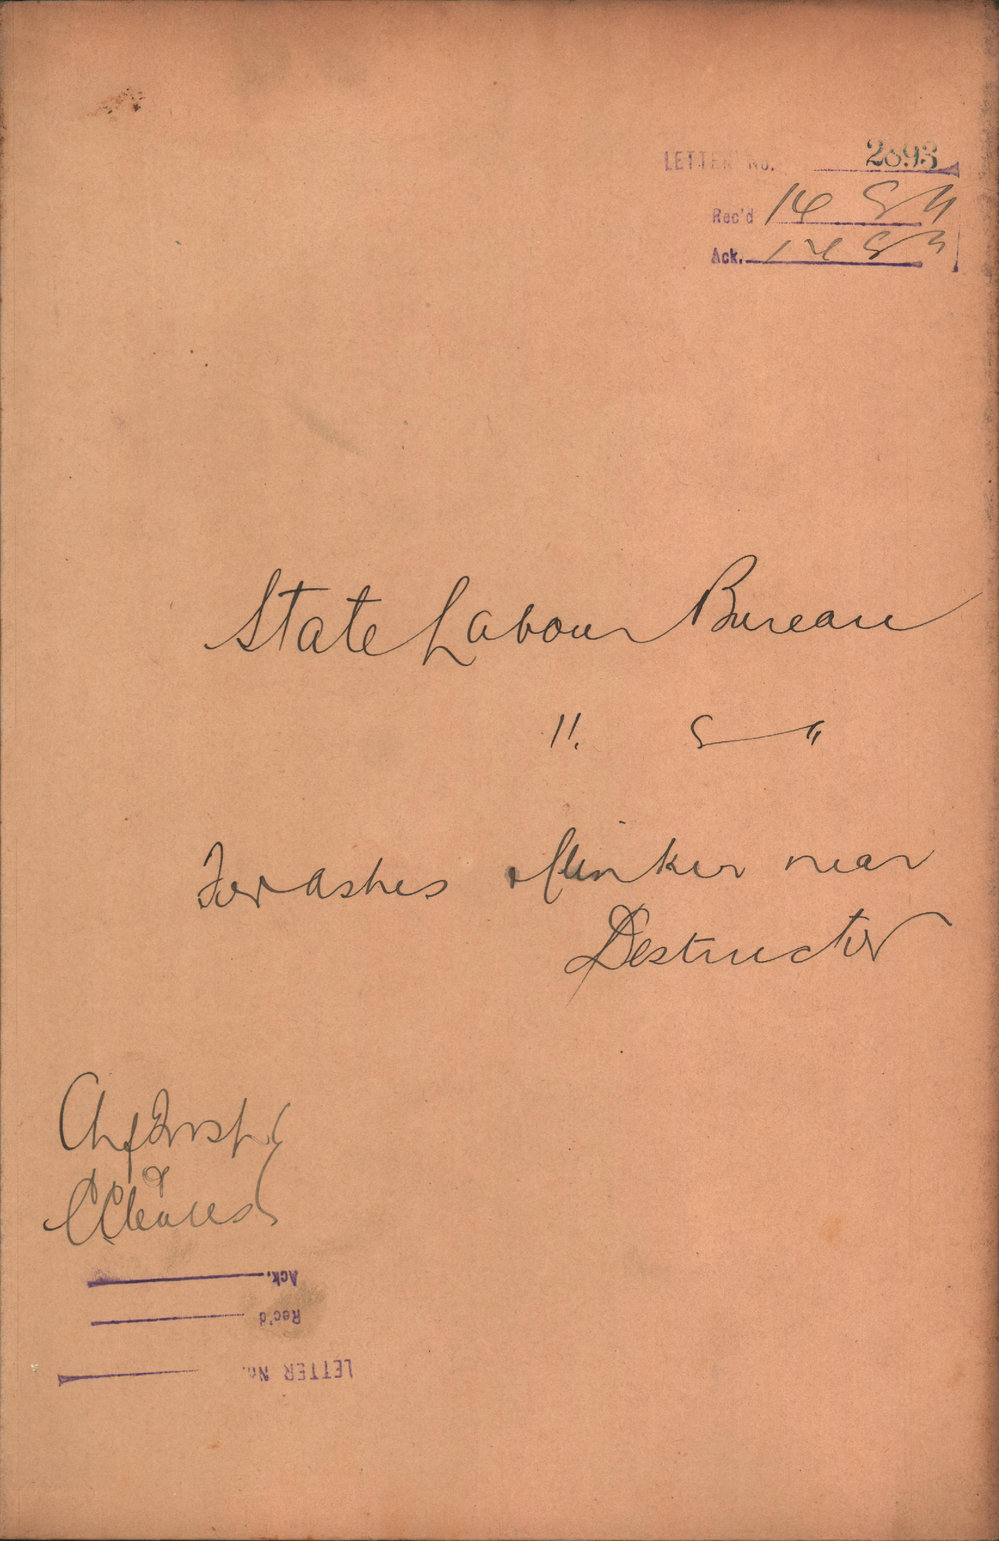 LETTER No. 2893
Rec'd 14
Ack. 14
State Labour Bureau
11.
For ashes & Clinker near
Destructor
Chf Insp
Ack.
Rec'd
LETTER No.